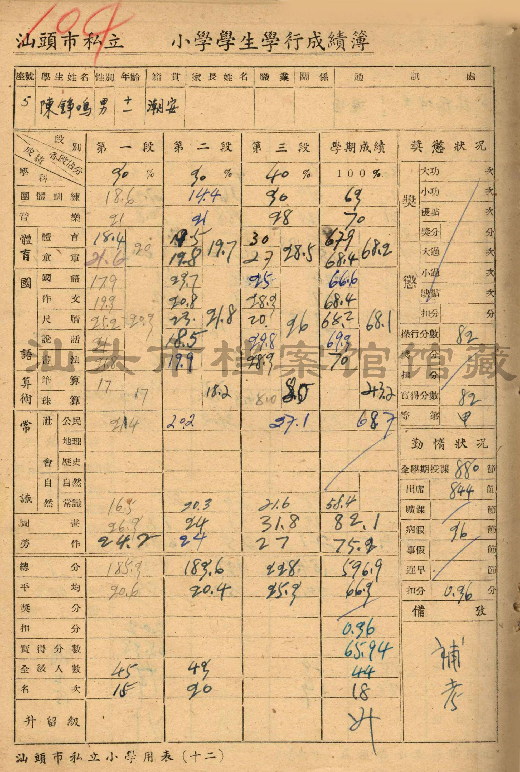 104
汕頭市私立 小學學生學行成績簿
座號 學生姓名 性別 年齡 籍貫 家長姓名 職業 關係 通訊處
5 陳鋒鳴 男 十二 潮安
段別 各段佔分 成績 學科 第一段 第二段 第三段 學期成績 獎懲狀況
30% 30% 40% 100%
團體訓練 18.6 14.4 30 63
音樂 21 21 28 70
體育 體育 18.4 18.5 30 67.9
童軍 21.6 19.8 27 68.4
20 19.7 28.5 68.2
國語 國語 17.9 23.7 25 66.6
作文 19.8 20.8 68.4
尺牘 25.2 23 20 68.2
21.8 26 68.1
說話 18.5
書法 19.9 70
算術 筆算 17
珠算 17 18.2
常識 社會 公民 地理 歷史 20.2 27.1 68.7
自然 自然 常識 20.3 21.6 58.4
圖畫 24 31.8 82.1
勞作 24.2 24 27 75.2
總分 185.9 183.6 228 596.9
平均 20.6 20.4 25.9 66.9
獎分
扣分 0.96
實得分數 65.94
全級人數 45 49 44
名次 18 20 18
升留級 升
獎 大功 次
小功 次
優點 次
獎分
懲 大過 次
小過 次
缺點 次
扣分
操行分數 82
獎分
扣分
實得分數 82
等第 甲
勤惰狀況
全學期授課 880 節
出席 844 節
曠課 節
病假 36 節
事假 節
遲早 節
扣分 0.96 分
備攷
補考
汕头市档案馆馆藏
汕頭市私立小學用表(十二)